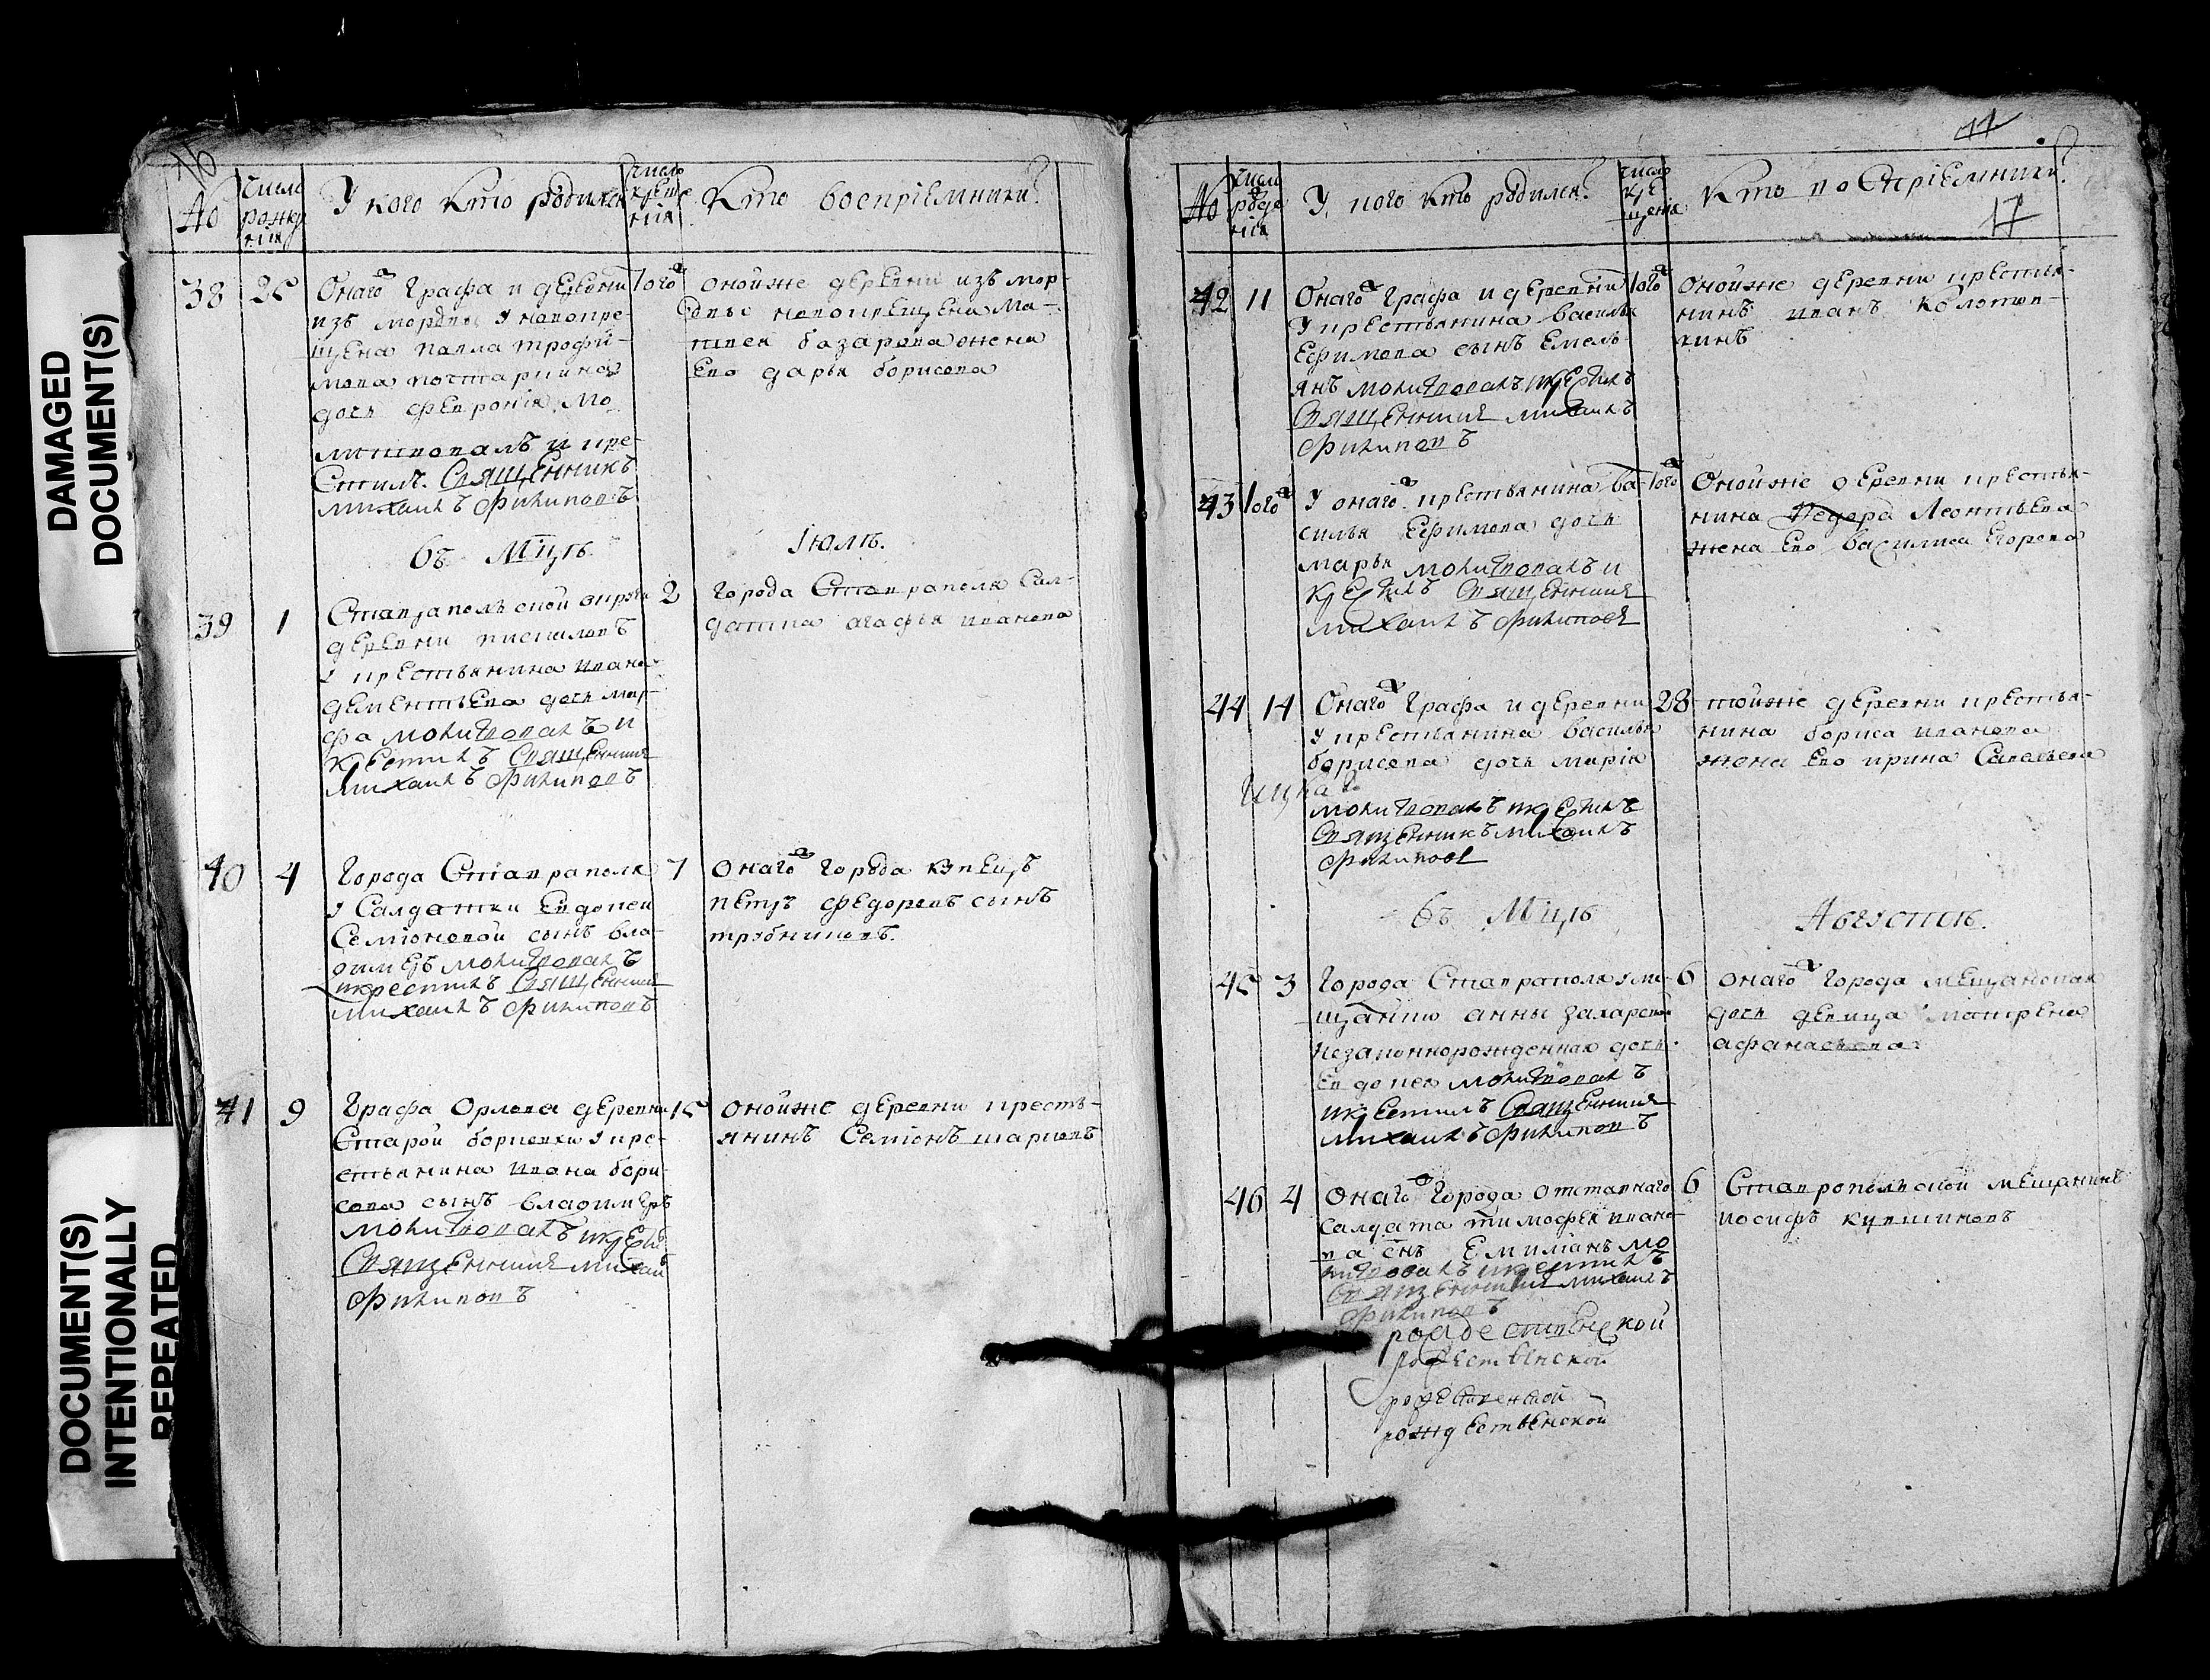 DAMAGED
DOCUMENT(S)
DOCUMENT(S)
INTENTIONALLY
REPEATED
16
№
число рождения
У кого кто родился
число крещения
Кто восприемники?
38 25
Онаго Графа и деревни
изъ мордвы у новокре-
щена Павла трофи-
мова
дочь феврония Мо
литвовалъ и кре-
стилъ. Священникъ
михаилъ Филиповъ
того
оной же деревни изъ мор-
двы новокрещена Ма-
твея базарова жена
Ево дарья борисова
въ Мцѣ Iюлѣ.
39 1
Ставрапольской округи
деревни
у крестьянина ивана
дементьева дочь мар-
фа молитвовалъ и
крестилъ Священникъ
михаилъ Филиповъ
2
города Ставраполя Сал-
датка агафья иванова
40 4
Города Ставраполя
у Салдатки Евдокеи
Семioновой сынъ вла-
димеръ молитвовалъ
икрестилъ Священникъ
михаилъ Филиповъ
7
онаго города купецъ
петръ федоровъ сынъ
трубниковъ.
41 9
Графа Орлова деревни
Старой борковки у кре-
стьянина ивана бори-
сова сынъ владимеръ
молитвовалъ
Священникъ михаи
Филиповъ
15
оной же деревни кресть-
янинъ Семioнъ
11
17
№
число рождения
У кого кто родился?
число крещения
Кто восприемники?
42 11
Онаго Графа и деревни
у крестьянина василья
Ефимова сынъ Емель-
янъ молитвовалъ икрестилъ
Священникъ михаилъ
Филиповъ
того
Оной же деревни крестья-
нинъ иванъ
кинъ
43 того
У онаго крестьянина ва-
силья Ефимова дочь
марья молитвовалъ и
крестилъ Священникъ
михаилъ Филиповъ
того
Оной же деревни крестья-
нина Федора Леонтьева
жена Ево василиса Егорова
44 14
Онаго Графа и деревни
у крестьянина василья
борисова дочь мария
молитвовалъ икрестилъ
Священникъ михаилъ
Филиповъ
28
той же деревни крестья-
нина бориса иванова
жена Ево ирина Савельева
въ Мцѣ Августѣ.
45 3
Города Ставраполя у ме-
щанки анны захаровой
незаконнорожденная дочь
Евдокея молитвовалъ
икрестилъ Священникъ
михаилъ Филиповъ
6
онаго города мещанская
дочь девица матрена
афанасьева
46 4
Онаго Города отставнаго
салдата тимофея ивано-
ва снъ Емилианъ мо
литвовалъ икрестилъ
Священникъ михаилъ
Филиповъ
6
Ставропольской мещанинъ
иосифъ
рождественской